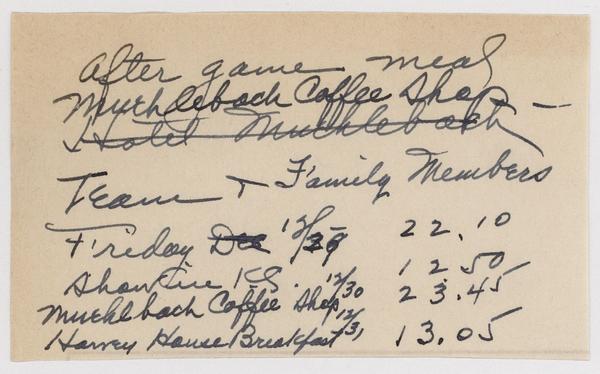 After game meal
Muehlebach Coffee Shop
Hotel Muehlebach –
Team + Family Members
Friday Dec 12/29 22.10
KS. 12/30 12.50
Muehlebach Coffee Shop 23.45
Harvey House Breakfast 12/31 13.05